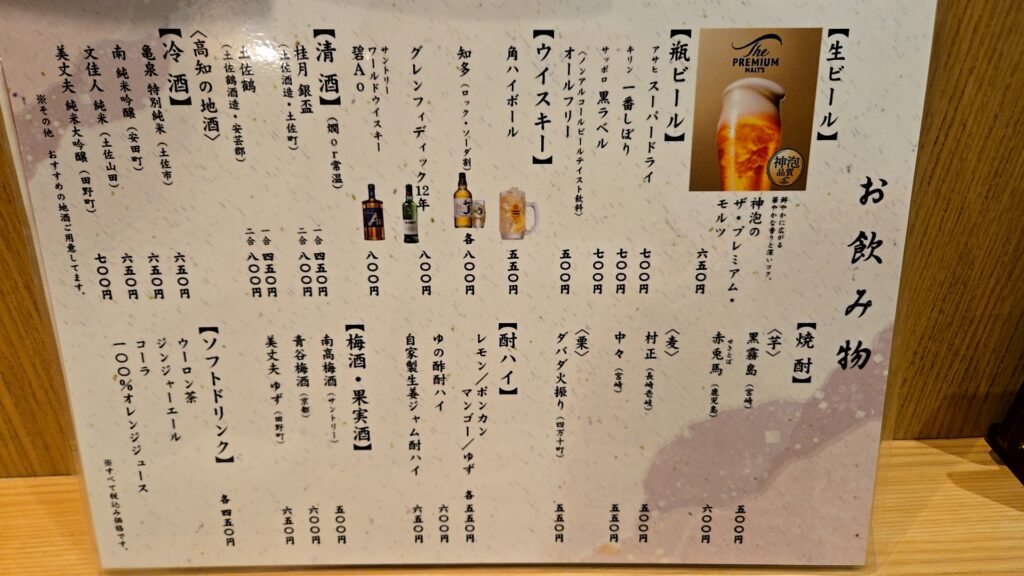 お飲み物
【生ビール】
The PREMIUM MALT'S
神泡品質
鮮やかに広がる
華やかな香りと深いコク。
神泡の
ザ・プレミアム・
モルツ 六五〇円
【瓶ビール】
アサヒ スーパードライ 七〇〇円
キリン 一番しぼり 七〇〇円
サッポロ 黒ラベル 七〇〇円
(ノンアルコールビールテイスト飲料)
オールフリー 五〇〇円
【ウイスキー】
角ハイボール 五五〇円
知多(ロック・ソーダ割) 各八〇〇円
グレンフィディック12年 八〇〇円
サントリー
ワールドウイスキー
碧Ao 八〇〇円
【清酒】(燗or常温)
桂月 銀盃 一合 四五〇円
(土佐酒造・土佐町) 二合 八〇〇円
土佐鶴 一合 四五〇円
(土佐鶴酒造・安芸郡) 二合 八〇〇円
〈高知の地酒〉
【冷酒】
亀泉 特別純米(土佐市) 六五〇円
南 純米吟醸(安田町) 六五〇円
文佳人 純米(土佐山田) 六五〇円
美丈夫 純米大吟醸(田野町) 七〇〇円
※その他 おすすめの地酒ご用意してます。
【焼酎】
〈芋〉
黒霧島(宮崎) 五〇〇円
赤兎馬(鹿児島) 六〇〇円
せきとば
〈麦〉
村正(長崎壱岐) 五〇〇円
中々(宮崎) 五五〇円
〈栗〉
ダバダ火振り(四万十町) 五五〇円
【酎ハイ】
レモン/ポンカン
マンゴー/ゆず 各五五〇円
ゆの酢酎ハイ 六〇〇円
自家製生姜ジャム酎ハイ 六五〇円
【梅酒・果実酒】
南高梅酒(サントリー) 五〇〇円
青谷梅酒(京都) 六〇〇円
美丈夫 ゆず(田野町) 六五〇円
【ソフトドリンク】 各四五〇円
ウーロン茶
ジンジャーエール
コーラ
一〇〇%オレンジジュース
※すべて税込み価格です。